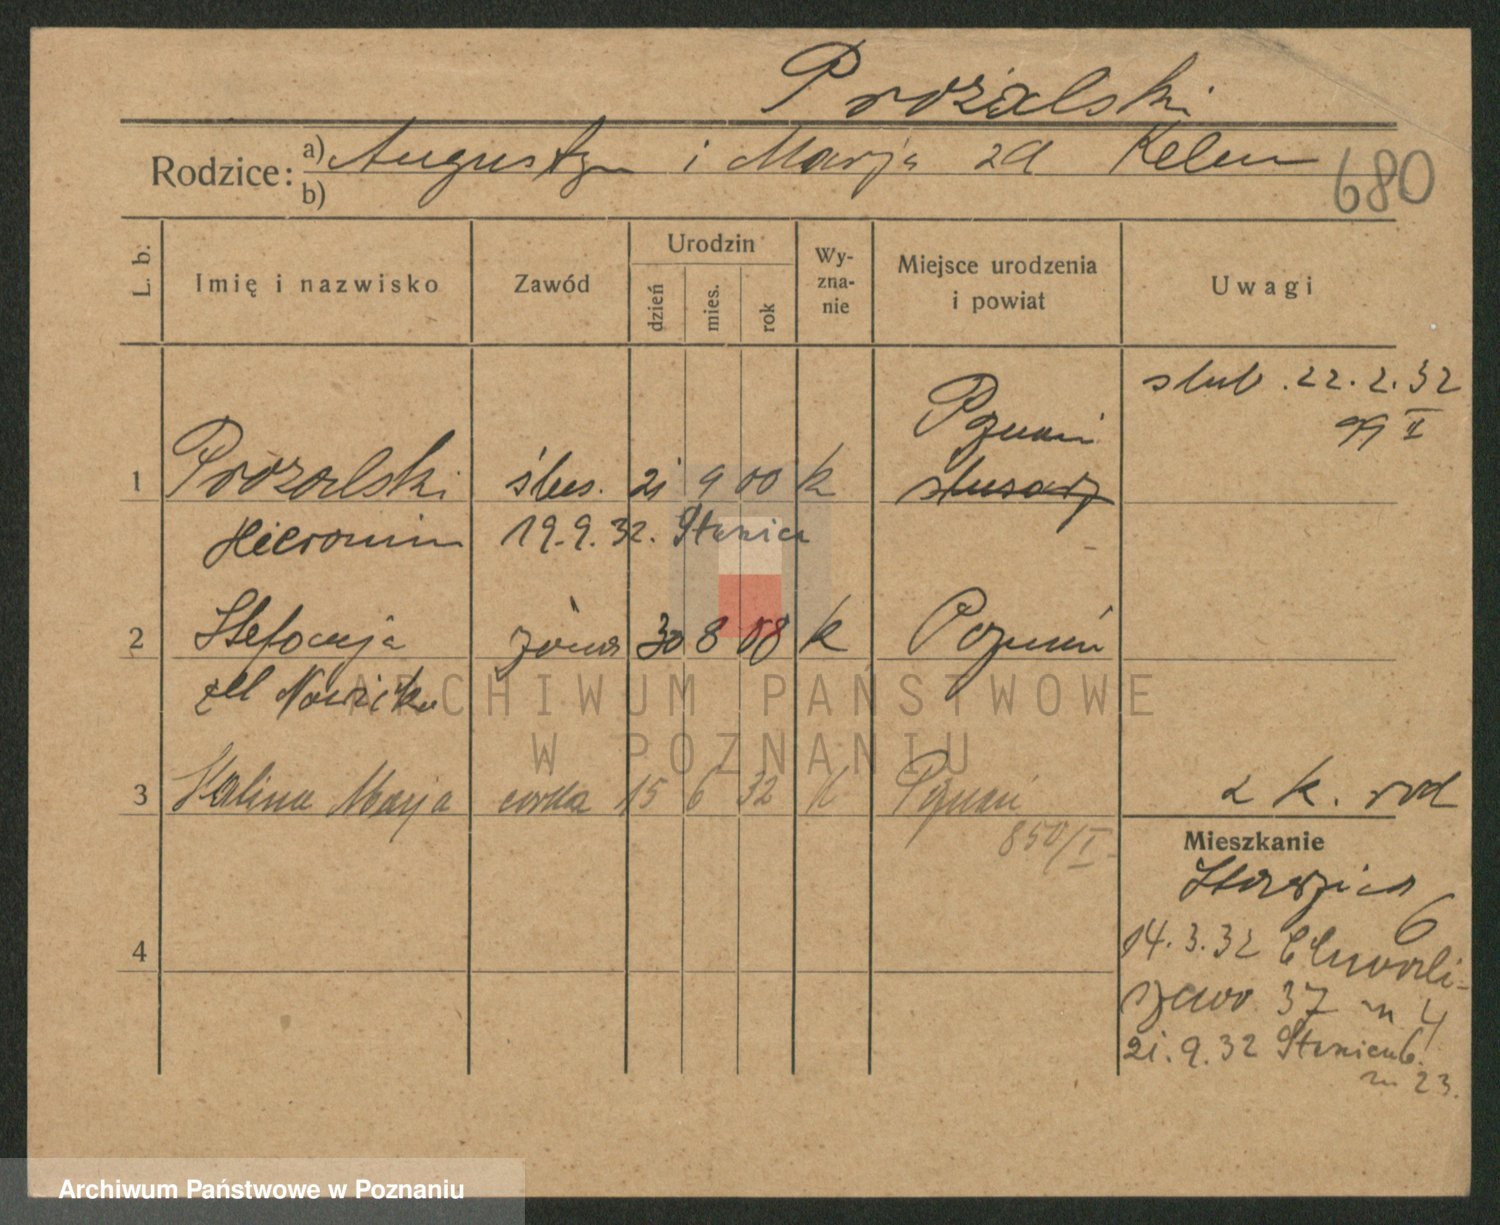 Prożalski
Rodzice: a) Augustyn i Marja zd Kelm
b)
680
L. b. Imię i nazwisko Zawód Urodzin dzień mies. rok Wyznanie Miejsce urodzenia i powiat Uwagi
ślub. 22.2.32
Poznań
1 Prożalski ślus. 21 9 00 k ślusarz
Hieronim 19.9.32. Starzica
2 Stefanja żona 30 8 08 k Poznań
zd Nowicka
ARCHIWUM PAŃSTWOWE
W POZNANIU
3 Halina Marja córka 15 6 32 k Poznań
850/I
z k. rod
Mieszkanie
6
4
14.3.32 Chwali-
szewo 37 m 4
21.9.32 6.
m 23.
Archiwum Państwowe w Poznaniu